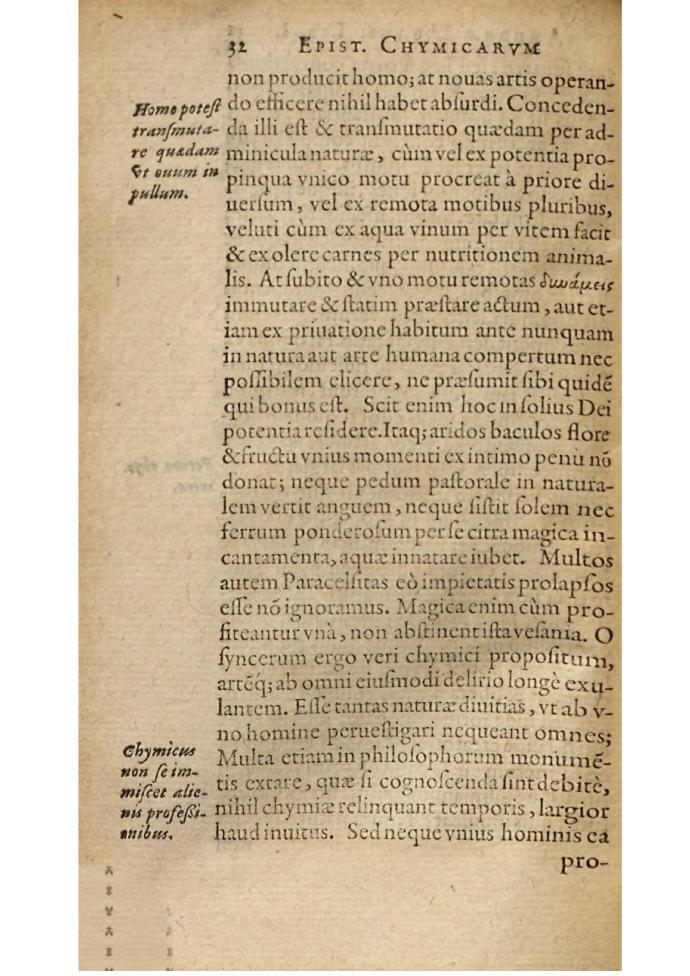 32 EPIST. CHYMICARVM
non producit homo; at nouas artis operan-
do efficere nihil habet abſurdi. Conceden-
da illi eſt & tranſmutatio quædam per ad-
minicula naturæ, cùm vel ex potentia pro-
pinqua vnico motu procreat à priore di-
uerſum, vel ex remota motibus pluribus,
veluti cùm ex aqua vinum per vitem facit
& ex olere carnes per nutritionem anima-
lis. At ſubito & vno motu remotas δυνάμεις
immutare & ſtatim præſtare actum, aut et-
iam ex priuatione habitum ante nunquam
in natura aut arte humana compertum nec
poſſibilem elicere, ne præſumit ſibi quidẽ
qui bonus eſt. Scit enim hoc in ſolius Dei
potentia reſidere. Itaq; aridos baculos flore
& fructu vnius momenti ex intimo penu nõ
donat; neque pedum paſtorale in natura-
lem vertit anguem, neque ſiſtit ſolem nec
ferrum ponderoſum per ſe citra magica in-
cantamenta, aquæ innatare iubet. Multos
autem Paracelſitas eò impietatis prolapſos
eſſe nõ ignoramus. Magica enim cùm pro-
fiteantur vnà, non abſtinent iſta veſania. O
ſyncerum ergo veri chymici propoſitum,
artẽq; ab omni eiuſmodi delirio longè exu-
lantem. Eſſe tantas naturæ diuitias, vt ab v-
no homine perueſtigari nequeant omnes;
Multa etiam in philoſophorum monumẽ-
tis extare, quæ ſi cognoſcenda ſint debitè,
nihil chymiæ relinquant temporis, largior
haud inuitus. Sed neque vnius hominis ea
pro-
Homo poteſt
tranſmuta-
re quædam
vt ouum in
pullum.
Chymicus
non ſe im-
miſcet alie-
nis profeſſi-
onibus.